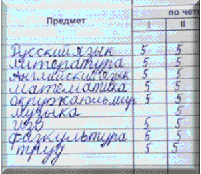 Предмет по чет
I II
Русский язык 5 5
Литература 5 5
Английский язык 5 5
Математика 5 5
окружающ.мир 5 5
Музыка 5
ИЗО 5 5
Физкультура 5 5
Труд 5 5